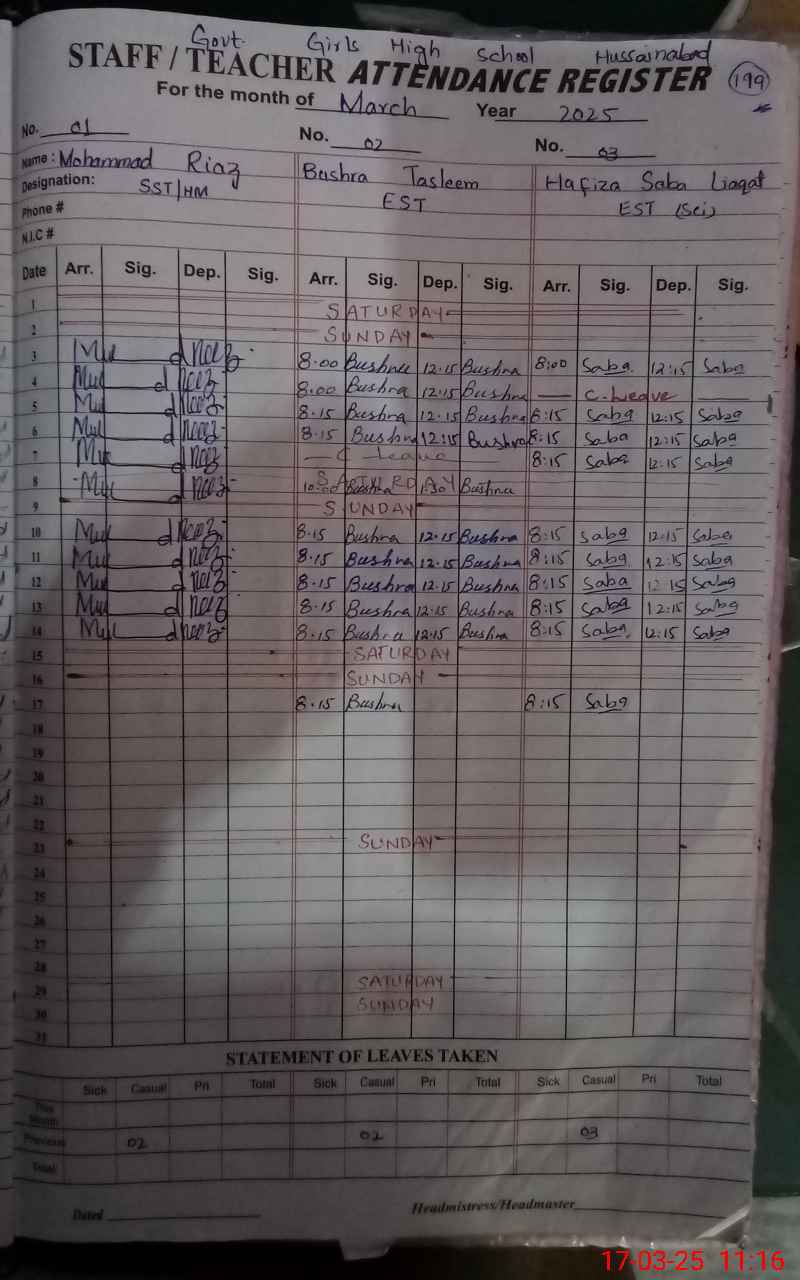 Govt. Girls High School Hussainabad
STAFF / TEACHER ATTENDANCE REGISTER 199
For the month of March Year 2025
No. 01 No. 02 No. 03
Name : Mohammad Riaz Bushra Tasleem Hafiza Saba Liaqat
Designation: SST/HM EST EST (Sci)
Phone #
N.I.C #
Date Arr. Sig. Dep. Sig. Arr. Sig. Dep. Sig. Arr. Sig. Dep. Sig.
1 SATURDAY
2 SUNDAY
3 8.00 Bushra 12.15 Bushra 8:00 Saba 12:15 Saba
4 8.00 Bushra 12.15 Bushra C.Leave
5 8.15 Bushra 12.15 Bushra 8:15 Saba 12:15 Saba
6 8.15 Bushra 12:15 Bushra 8:15 Saba 12:15 Saba
7 C Leave 8:15 Saba 12:15 Saba
8 SATURDAY 10:00 Bushra 1:30 Bushra
9 SUNDAY
10 8.15 Bushra 12.15 Bushra 8:15 Saba 12:15 Saba
11 8.15 Bushra 12.15 Bushra 8:15 Saba 12:15 Saba
12 8.15 Bushra 12.15 Bushra 8:15 Saba 12:15 Saba
13 8.15 Bushra 12:15 Bushra 8:15 Saba 12:15 Saba
14 8.15 Bushra 12:15 Bushra 8:15 Saba 12:15 Saba
15 SATURDAY
16 SUNDAY
17 8.15 Bushra 8:15 Saba
18
19
20
21
22
23 SUNDAY
24
25
26
27
28
29 SATURDAY
30 SUNDAY
31
STATEMENT OF LEAVES TAKEN
Sick Casual Pri Total Sick Casual Pri Total Sick Casual Pri Total
This Month
Previous 02 02 03
Total
Dated Headmistress/Headmaster
17-03-25 11:16